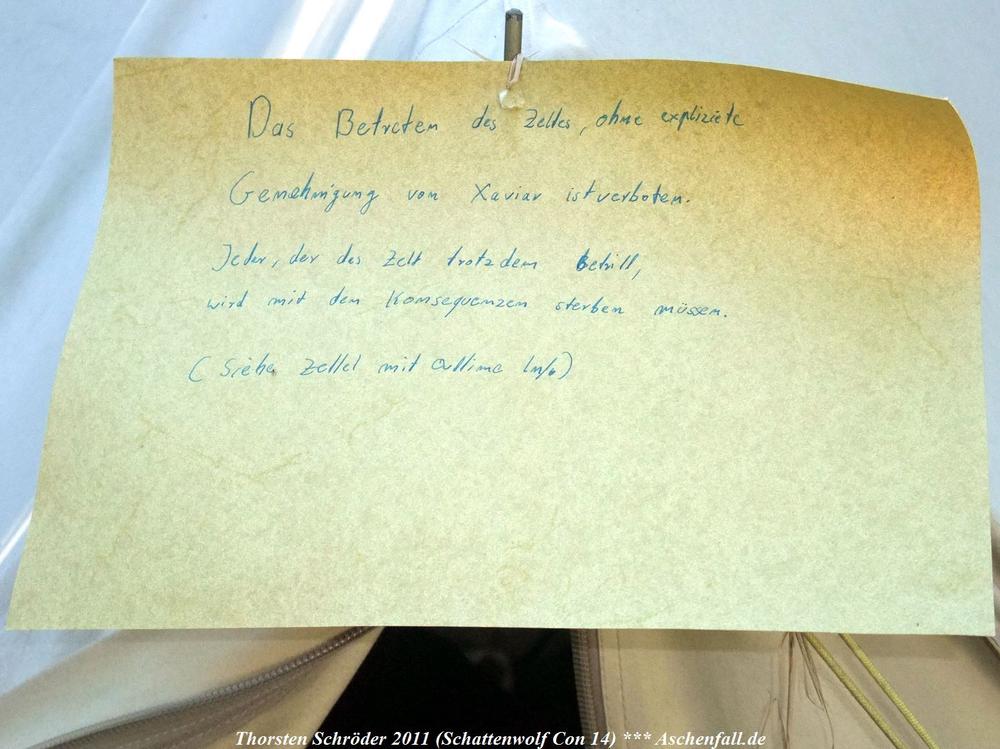 Das Betreten des Zeltes, ohne expliziete
Genehmigung von Xaviar ist verboten.
Jeder, der das Zelt trotzdem betritt,
wird mit den Konsequenzen sterben müssen.
(Siehe Zettel mit outtime Info)
Thorsten Schröder 2011 (Schattenwolf Con 14) *** Aschenfall.de